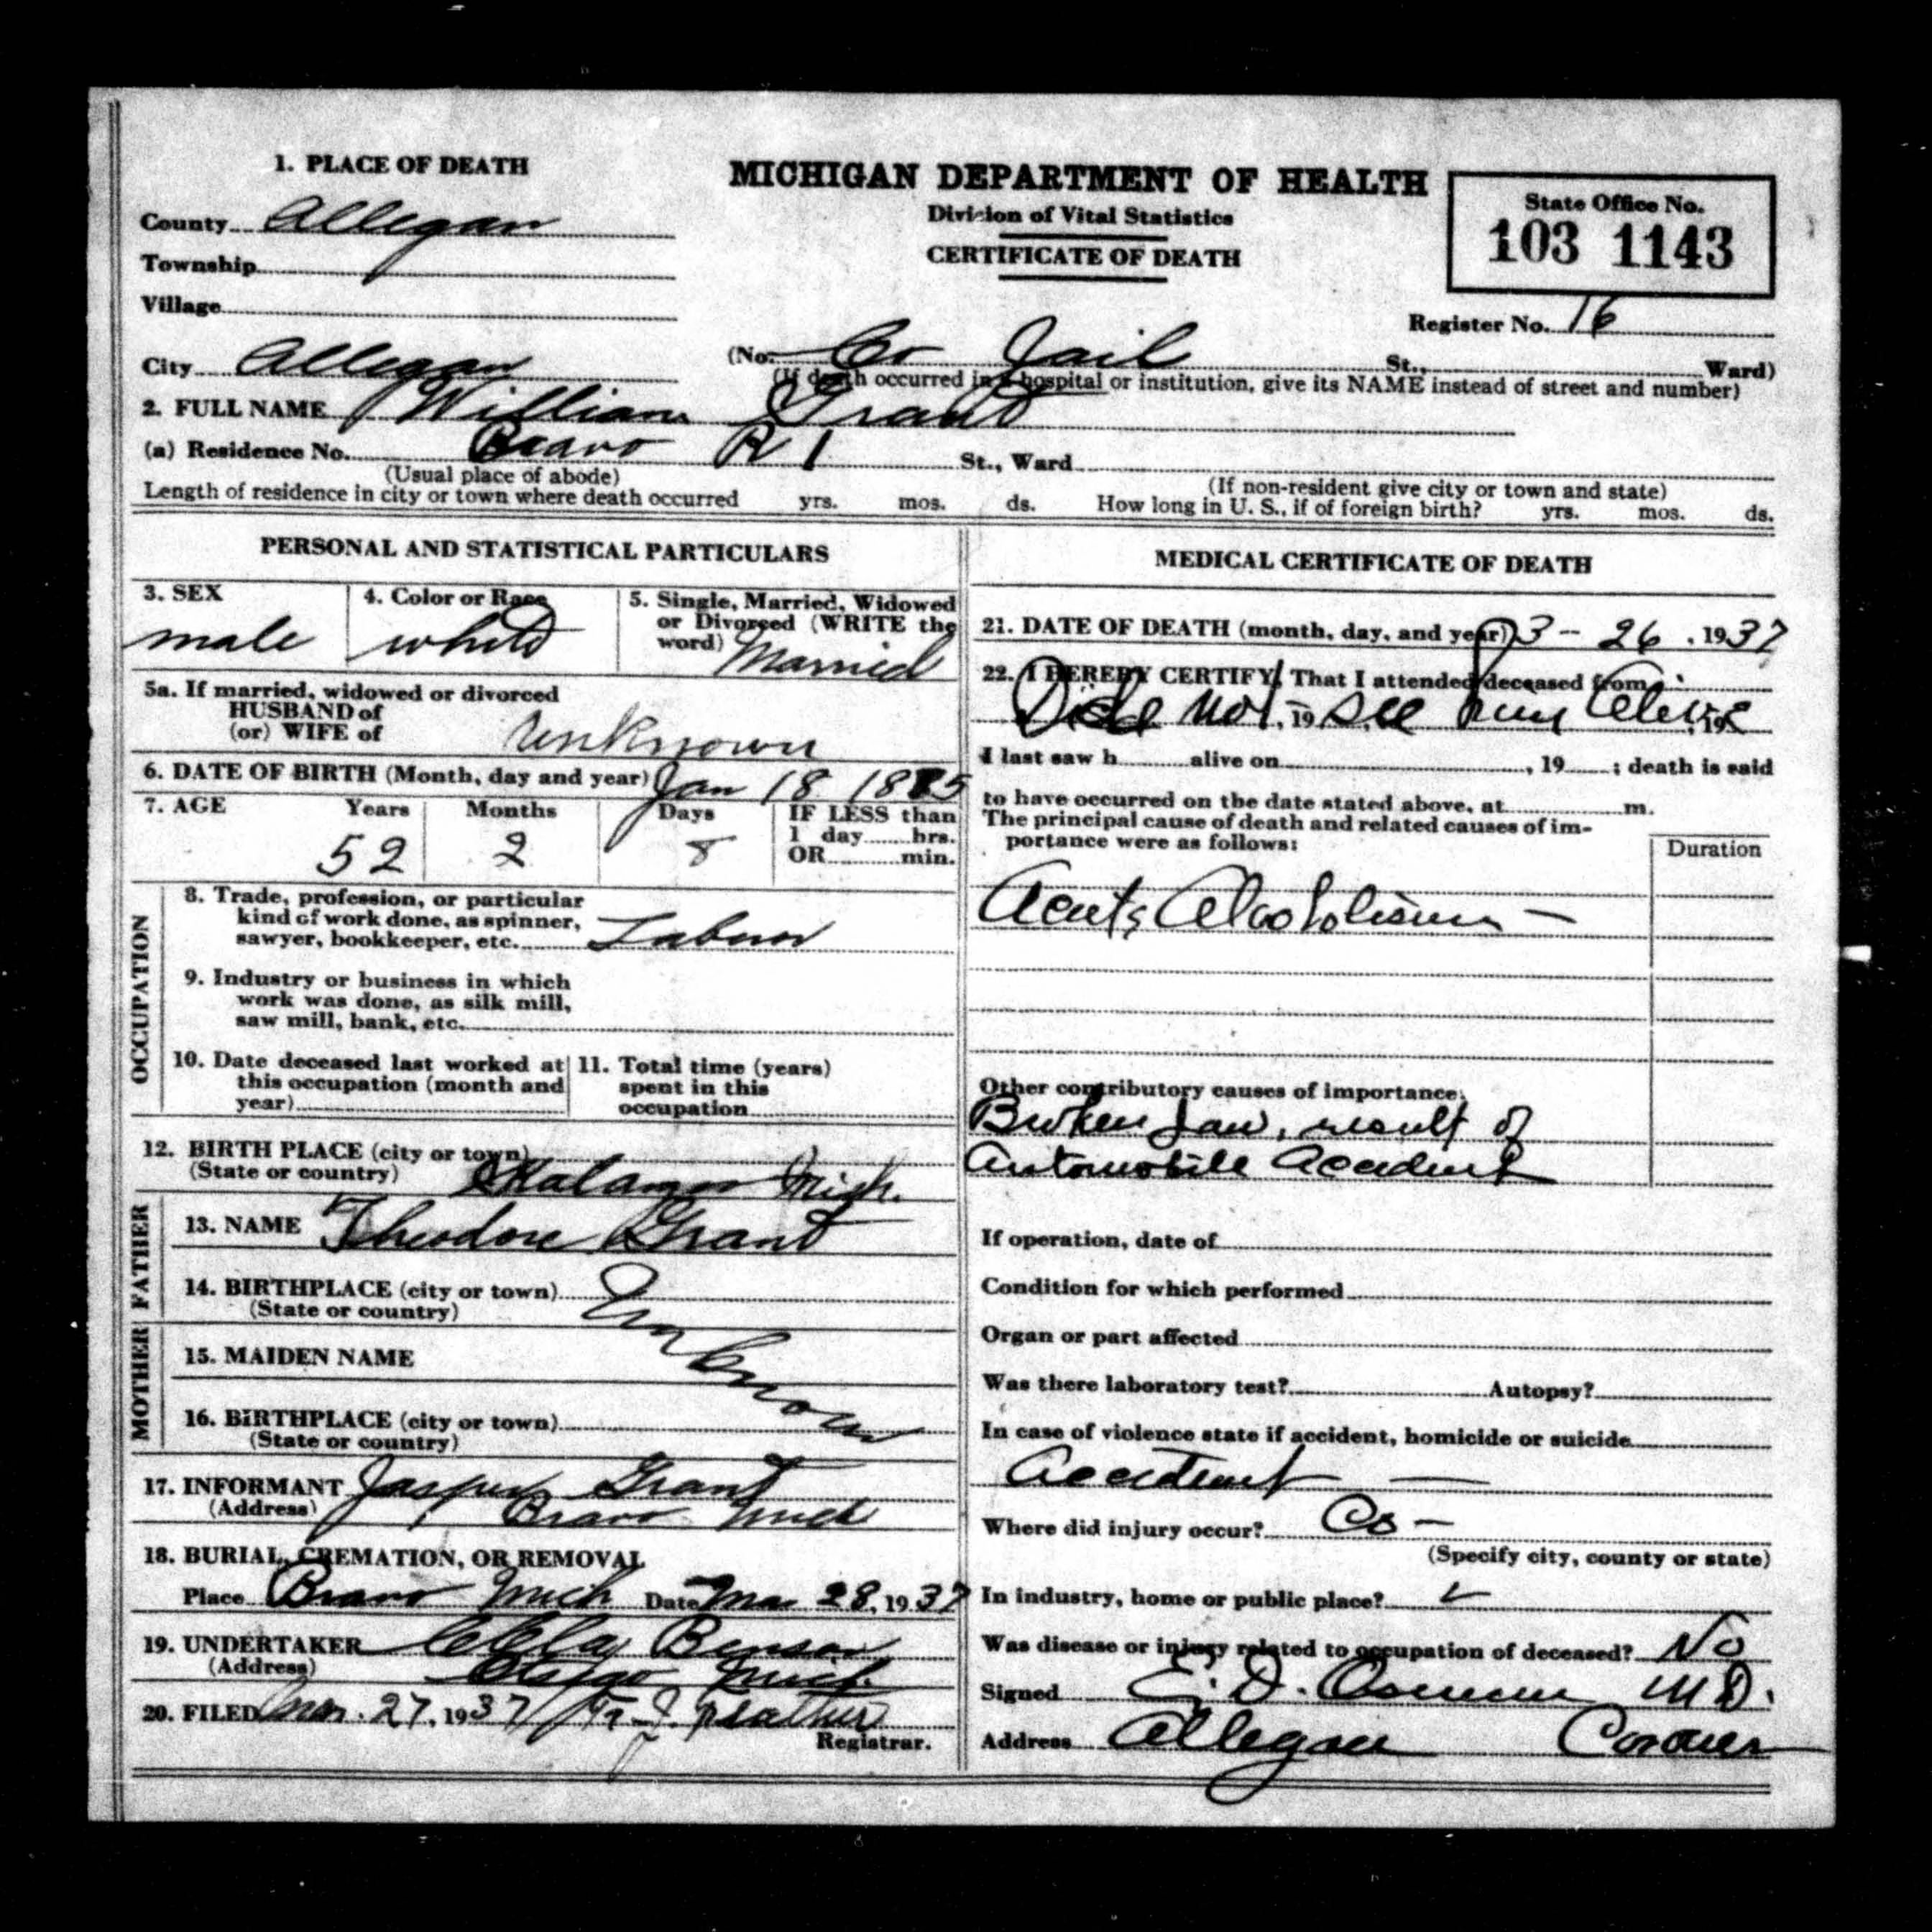 1. PLACE OF DEATH
MICHIGAN DEPARTMENT OF HEALTH
Division of Vital Statistics
CERTIFICATE OF DEATH
State Office No.
103 1143
County Allegan
Township
Village
Register No. 16
City Allegan (No. Co Jail St., Ward)
(If death occurred in a hospital or institution, give its NAME instead of street and number)
2. FULL NAME William Grant
(a) Residence No. Bravo R 1 St., Ward
(Usual place of abode) (If non-resident give city or town and state)
Length of residence in city or town where death occurred yrs. mos. ds. How long in U. S., if of foreign birth? yrs. mos. ds.
PERSONAL AND STATISTICAL PARTICULARS
3. SEX
male
4. Color or Race
white
5. Single, Married, Widowed
or Divorced (WRITE the
word) Married
5a. If married, widowed or divorced
HUSBAND of
(or) WIFE of unknown
6. DATE OF BIRTH (Month, day and year) Jan 18 1885
7. AGE Years Months Days IF LESS than
1 day hrs.
OR min.
52 2 8
OCCUPATION
8. Trade, profession, or particular
kind of work done, as spinner,
sawyer, bookkeeper, etc. Labor
9. Industry or business in which
work was done, as silk mill,
saw mill, bank, etc.
10. Date deceased last worked at
this occupation (month and
year)
11. Total time (years)
spent in this
occupation
12. BIRTH PLACE (city or town)
(State or country) Mich.
FATHER
13. NAME Theodore Grant
14. BIRTHPLACE (city or town)
(State or country)
Unknown
MOTHER
15. MAIDEN NAME
16. BIRTHPLACE (city or town)
(State or country)
17. INFORMANT Jasper Grant
(Address) Bravo Mich
18. BURIAL, CREMATION, OR REMOVAL
Place Bravo Mich Date Mar 28, 1937
19. UNDERTAKER Benson
(Address) Otsego Mich.
20. FILED Mar. 27, 1937
Registrar.
MEDICAL CERTIFICATE OF DEATH
21. DATE OF DEATH (month, day, and year) 3-26, 1937
22. I HEREBY CERTIFY, That I attended deceased from
Did not, 19 see him alive, 19
I last saw h alive on , 19 ; death is said
to have occurred on the date stated above, at m.
The principal cause of death and related causes of im-
portance were as follows:
Duration
Acute Alcoholism -
Other contributory causes of importance:
Broken Jaw, result of
Automobile Accident
If operation, date of
Condition for which performed
Organ or part affected
Was there laboratory test? Autopsy?
In case of violence state if accident, homicide or suicide
Accident -
Where did injury occur? Co -
(Specify city, county or state)
In industry, home or public place?
Was disease or injury related to occupation of deceased? No
Signed E. D. Osmun M.D.
Address Allegan Coroner